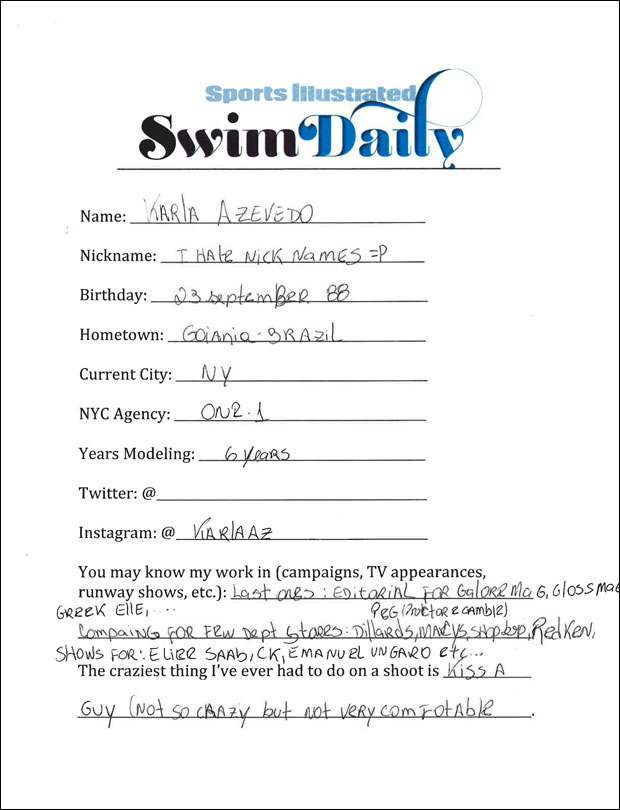 Sports Illustrated
Swim Daily
Name: KARlA AZEVEDO
Nickname: I HAte NicK NAMES =P
Birthday: 23 septembER 88
Hometown: GOiANiA - BRAZil
Current City: NY
NYC Agency: ONE.1
Years Modeling: 6 YeARS
Twitter: @
Instagram: @ KARlAAZ
You may know my work in (campaigns, TV appearances,
runway shows, etc.): LAst ONES : EDitORiAL FOR GAlORE MAG, GlOSS MAG
GREEK EllE, ....
PEG
COMPAiNG FOR FEW Dept StORES: DillARDS, MACYS, ShopESP, REDKEN,
SHOWS FOR: ELiEE SAAb, CK, EMANUEL UNGARO etc...
The craziest thing I've ever had to do on a shoot is KiSS A
GUY (NOt SO CRAAZY but NOt VERY COMFOtAblE.